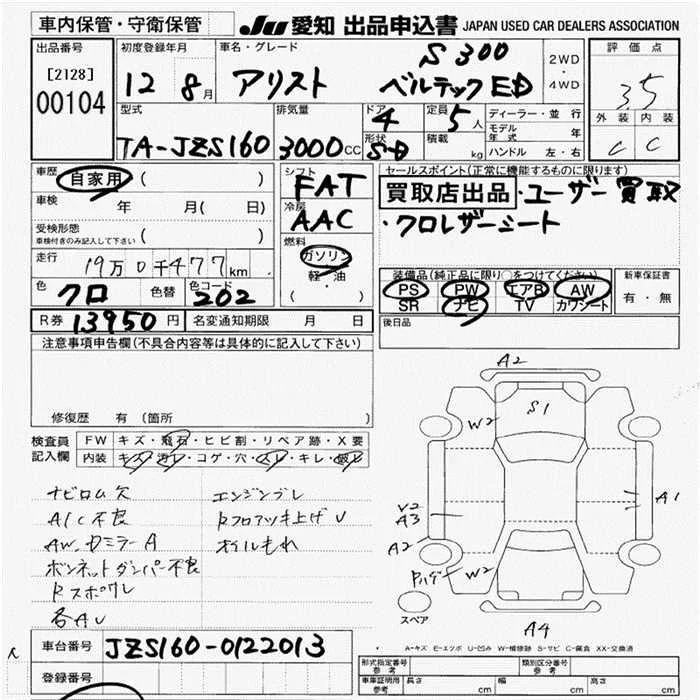 車内保管・守衛保管
JU 愛知 出品申込書 JAPAN USED CAR DEALERS ASSOCIATION
出品番号
[2128]
00104
初度登録年月
12 8月
車名・グレード
アリスト
S300
ベルテックED
2WD
・
4WD
評価点
3.5
外装 内装
C C
型式
TA-JZS160
排気量
3000cc
ドア
4
形状
SD
定員
5人
積載
kg
ディーラー・並行
モデル年式 年
ハンドル 左・右
車歴
自家用 ( )
車検 年 月( 日)
受検形態
車検付きのみ記入して下さい ( )
走行 19万0千477km
色 クロ 色替 色コード 202
R券 13950円 名変通知期限 月 日
シフト
FAT
冷房
AAC
燃料
ガソリン
軽・油
( )
セールスポイント(正常に機能するものに限ります)
買取店出品・ユーザー買取
・クロレザーシート
装備品(純正品に限り○をつけてください)
PS PW エアB AW
SR ナビ TV カワシート
新車保証書
有・無
後日品
注意事項申告欄(不具合内容等は具体的に記入して下さい)
修復歴 有 (箇所 )
検査員記入欄
FW キズ・飛石・ヒビ割・リペア跡・X要
内装 キズ・汚レ・コゲ・穴・スレ・キレ・破レ
ナビロム欠
A/C不良
AW、ドミラーA
ボンネットダンパー不良
Rスポワレ
各AU
エンジンブレ
Rフロアツキ上げU
オイルもれ
A2
W2
S1
A1
V2
A3
A2
W2
スペア
A4
A-キズ E-エクボ U-凹み W-補修跡 S-サビ C-腐食 XX-交換済
車台番号 JZS160-0122013
登録番号
形式指定番号
参考
類別区分番号
参考
車庫証明用
参考
長さ cm 幅 cm 高さ cm